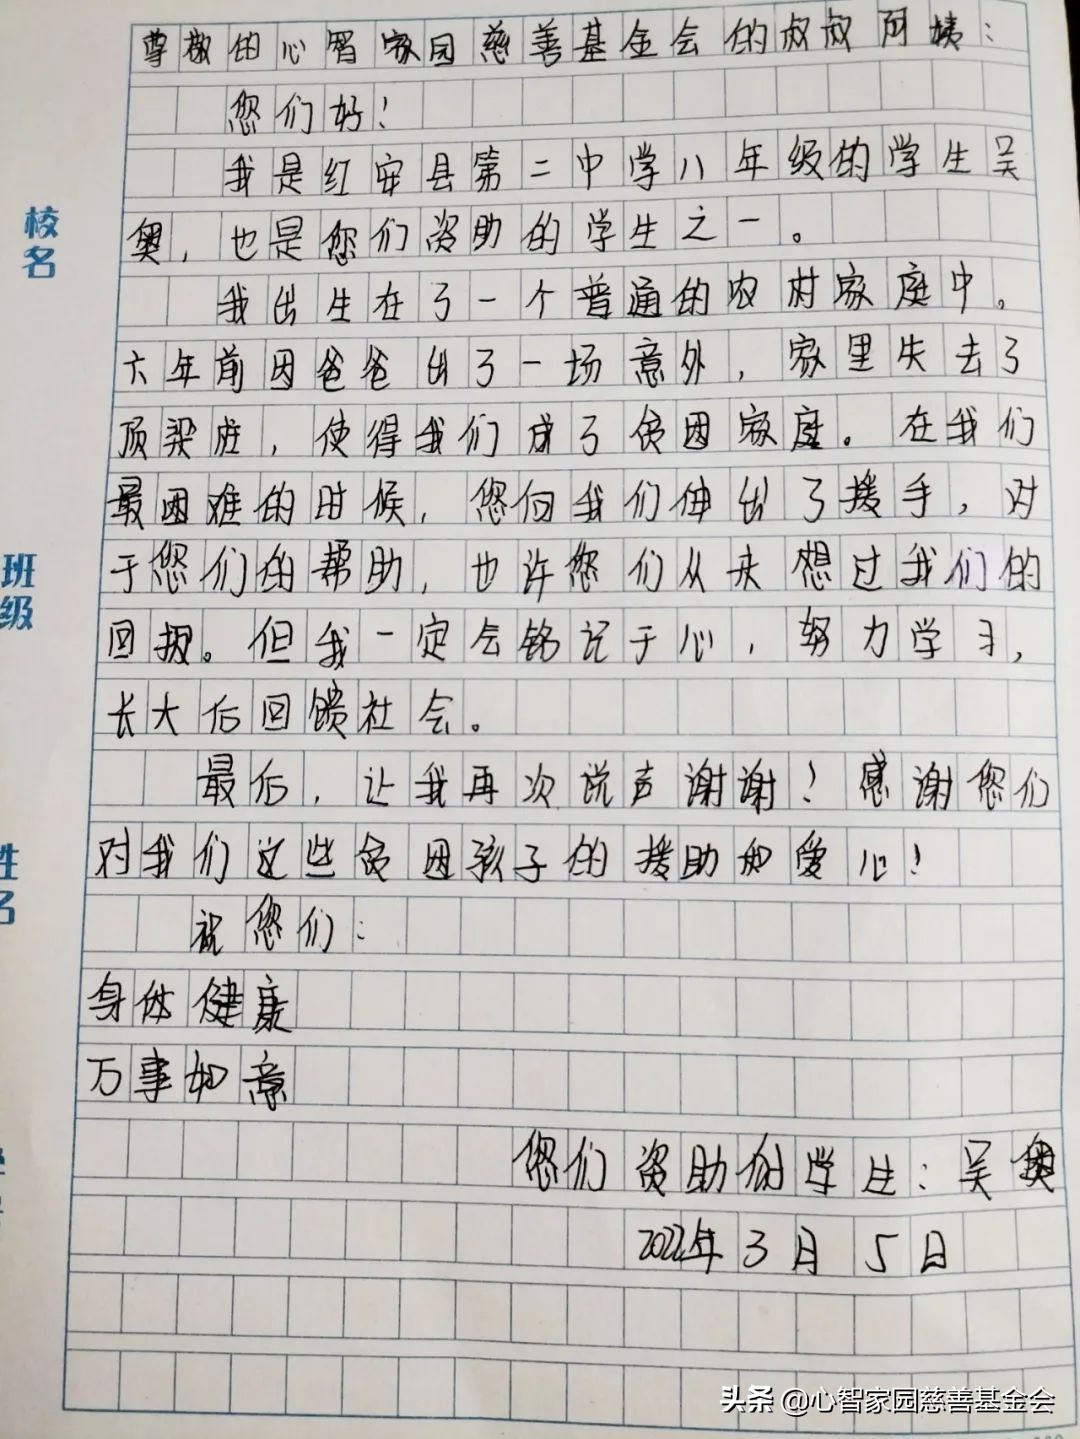 尊敬的心智家园慈善基金会的叔叔阿姨：
您们好！
我是红安县第二中学八年级的学生吴
奥，也是您们资助的学生之一。
我出生在了一个普通的农村家庭中。
六年前因爸爸出了一场意外，家里失去了
顶梁柱，使得我们成了贫困家庭。在我们
最困难的时候，您们向我们伸出了援手，对
于您们的帮助，也许您们从未想过我们的
回报。但我一定会铭记于心，努力学习，
长大后回馈社会。
最后，让我再次说声谢谢！感谢您们
对我们这些贫困孩子的援助和爱心！
祝您们：
身体健康
万事如意
您们资助的学生：吴奥
2022年3月5日
校名
班级
姓名
头条 @心智家园慈善基金会